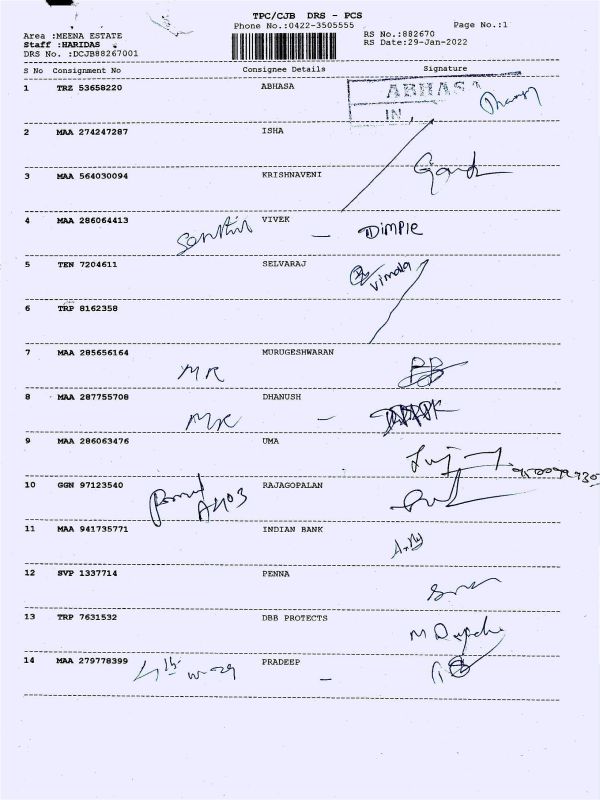 TPC/CJB DRS - PCS
Phone No.:0422-3505555 Page No.:1
Area :MEENA ESTATE
Staff :HARIDAS
DRS No. :DCJB88267001
RS No.:882670
RS Date:29-Jan-2022
S No Consignment No Consignee Details Signature
1 TRZ 53658220 ABHASA
ABHASA
IN
2 MAA 274247287 ISHA
3 MAA 564030094 KRISHNAVENI
4 MAA 286064413 VIVEK
Senthil - Dimple
5 TEN 7204611 SELVARAJ
Vimala
6 TRP 8162358
7 MAA 285656164 MURUGESHWARAN
MR
8 MAA 287755708 DHANUSH
MR -
9 MAA 286063476 UMA
10 GGN 97123540 RAJAGOPALAN
A403
11 MAA 941735771 INDIAN BANK
12 SVP 1337714 PENNA
13 TRP 7631532 DBB PROTECTS
14 MAA 279778399 PRADEEP